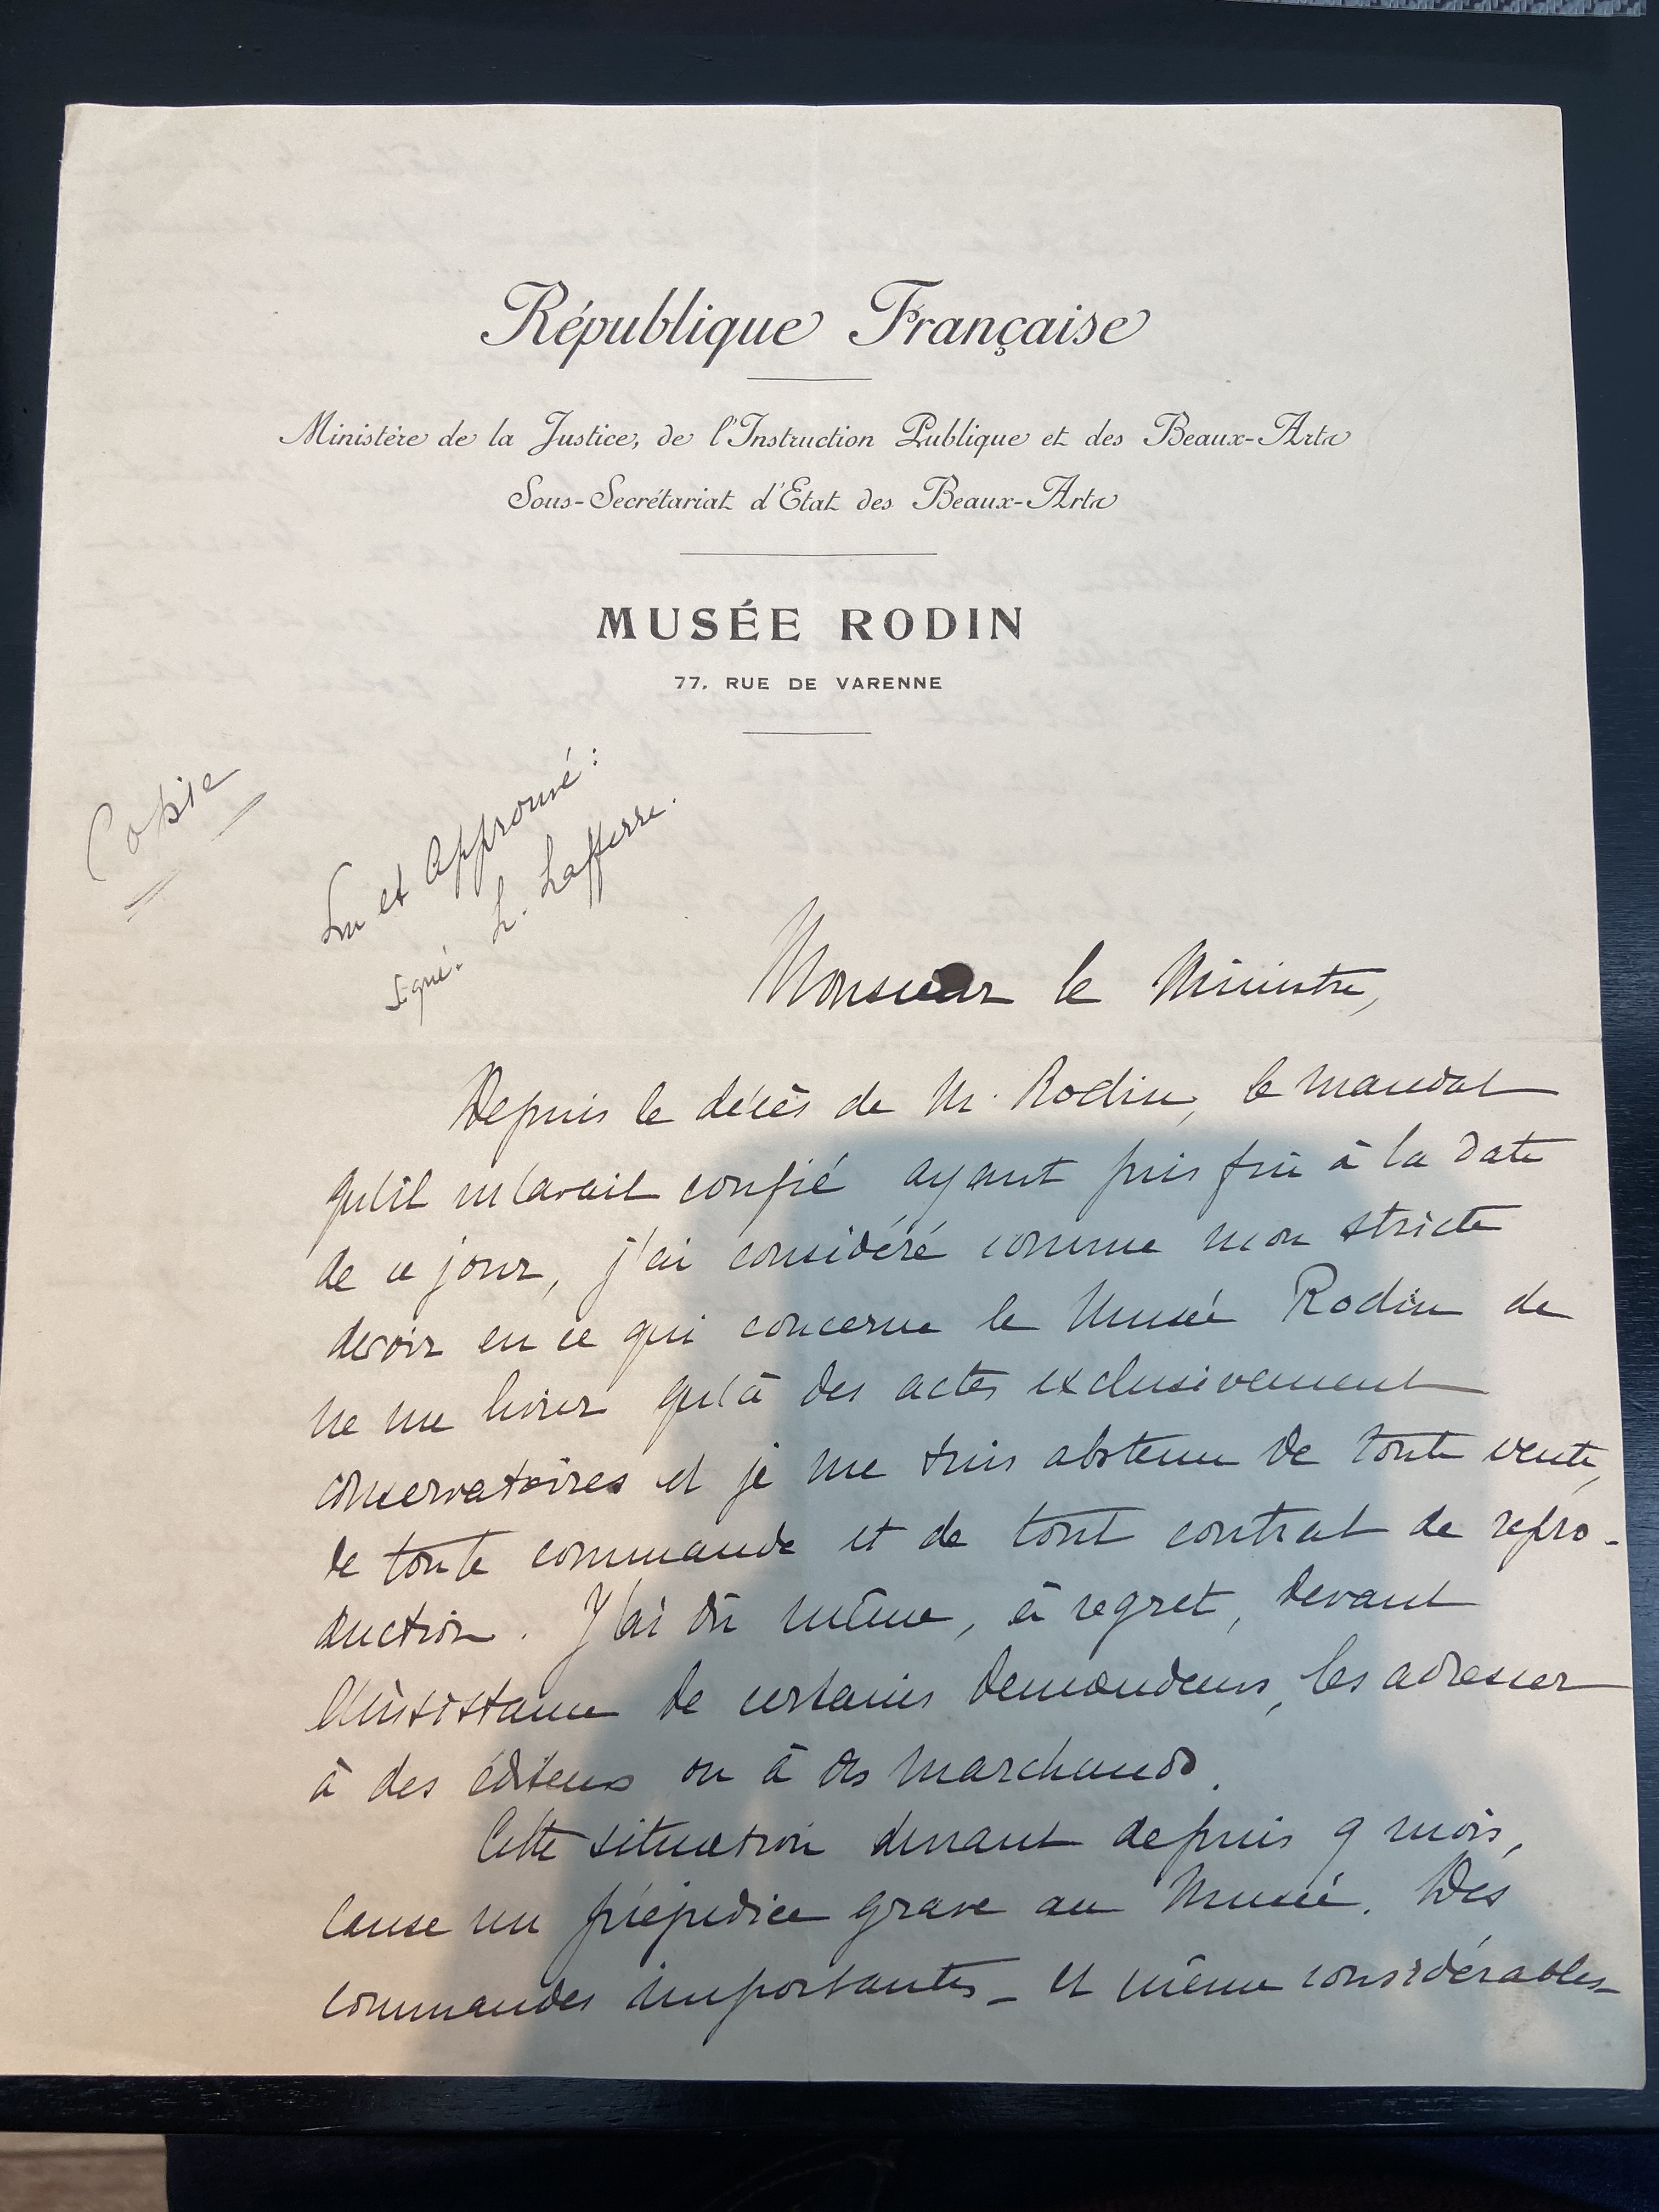 République Française
Ministère de la Justice, de l'Instruction Publique et des Beaux-Arts
Sous-Secrétariat d'Etat des Beaux-Arts
MUSÉE RODIN
77, RUE DE VARENNE
Copie
Lu et Approuvé :
signé. L. Lafferre.
Monsieur le Ministre,
Depuis le décès de M. Rodin, le mandat
qu'il m'avait confié ayant pris fin à la date
de ce jour, j'ai considéré comme mon stricte
devoir en ce qui concerne le Musée Rodin de
ne me livrer qu'à des actes exclusivement
conservatoires et je me suis abstenu de toute vente,
de toute commande et de tout contrat de repro-
duction. J'ai dû même, à regret, devant
l'insistance de certains demandeurs, les adresser
à des éditeurs ou à des marchands.
Cette situation durant depuis 9 mois,
cause un préjudice grave au Musée. Des
commandes importantes - et même considérables -